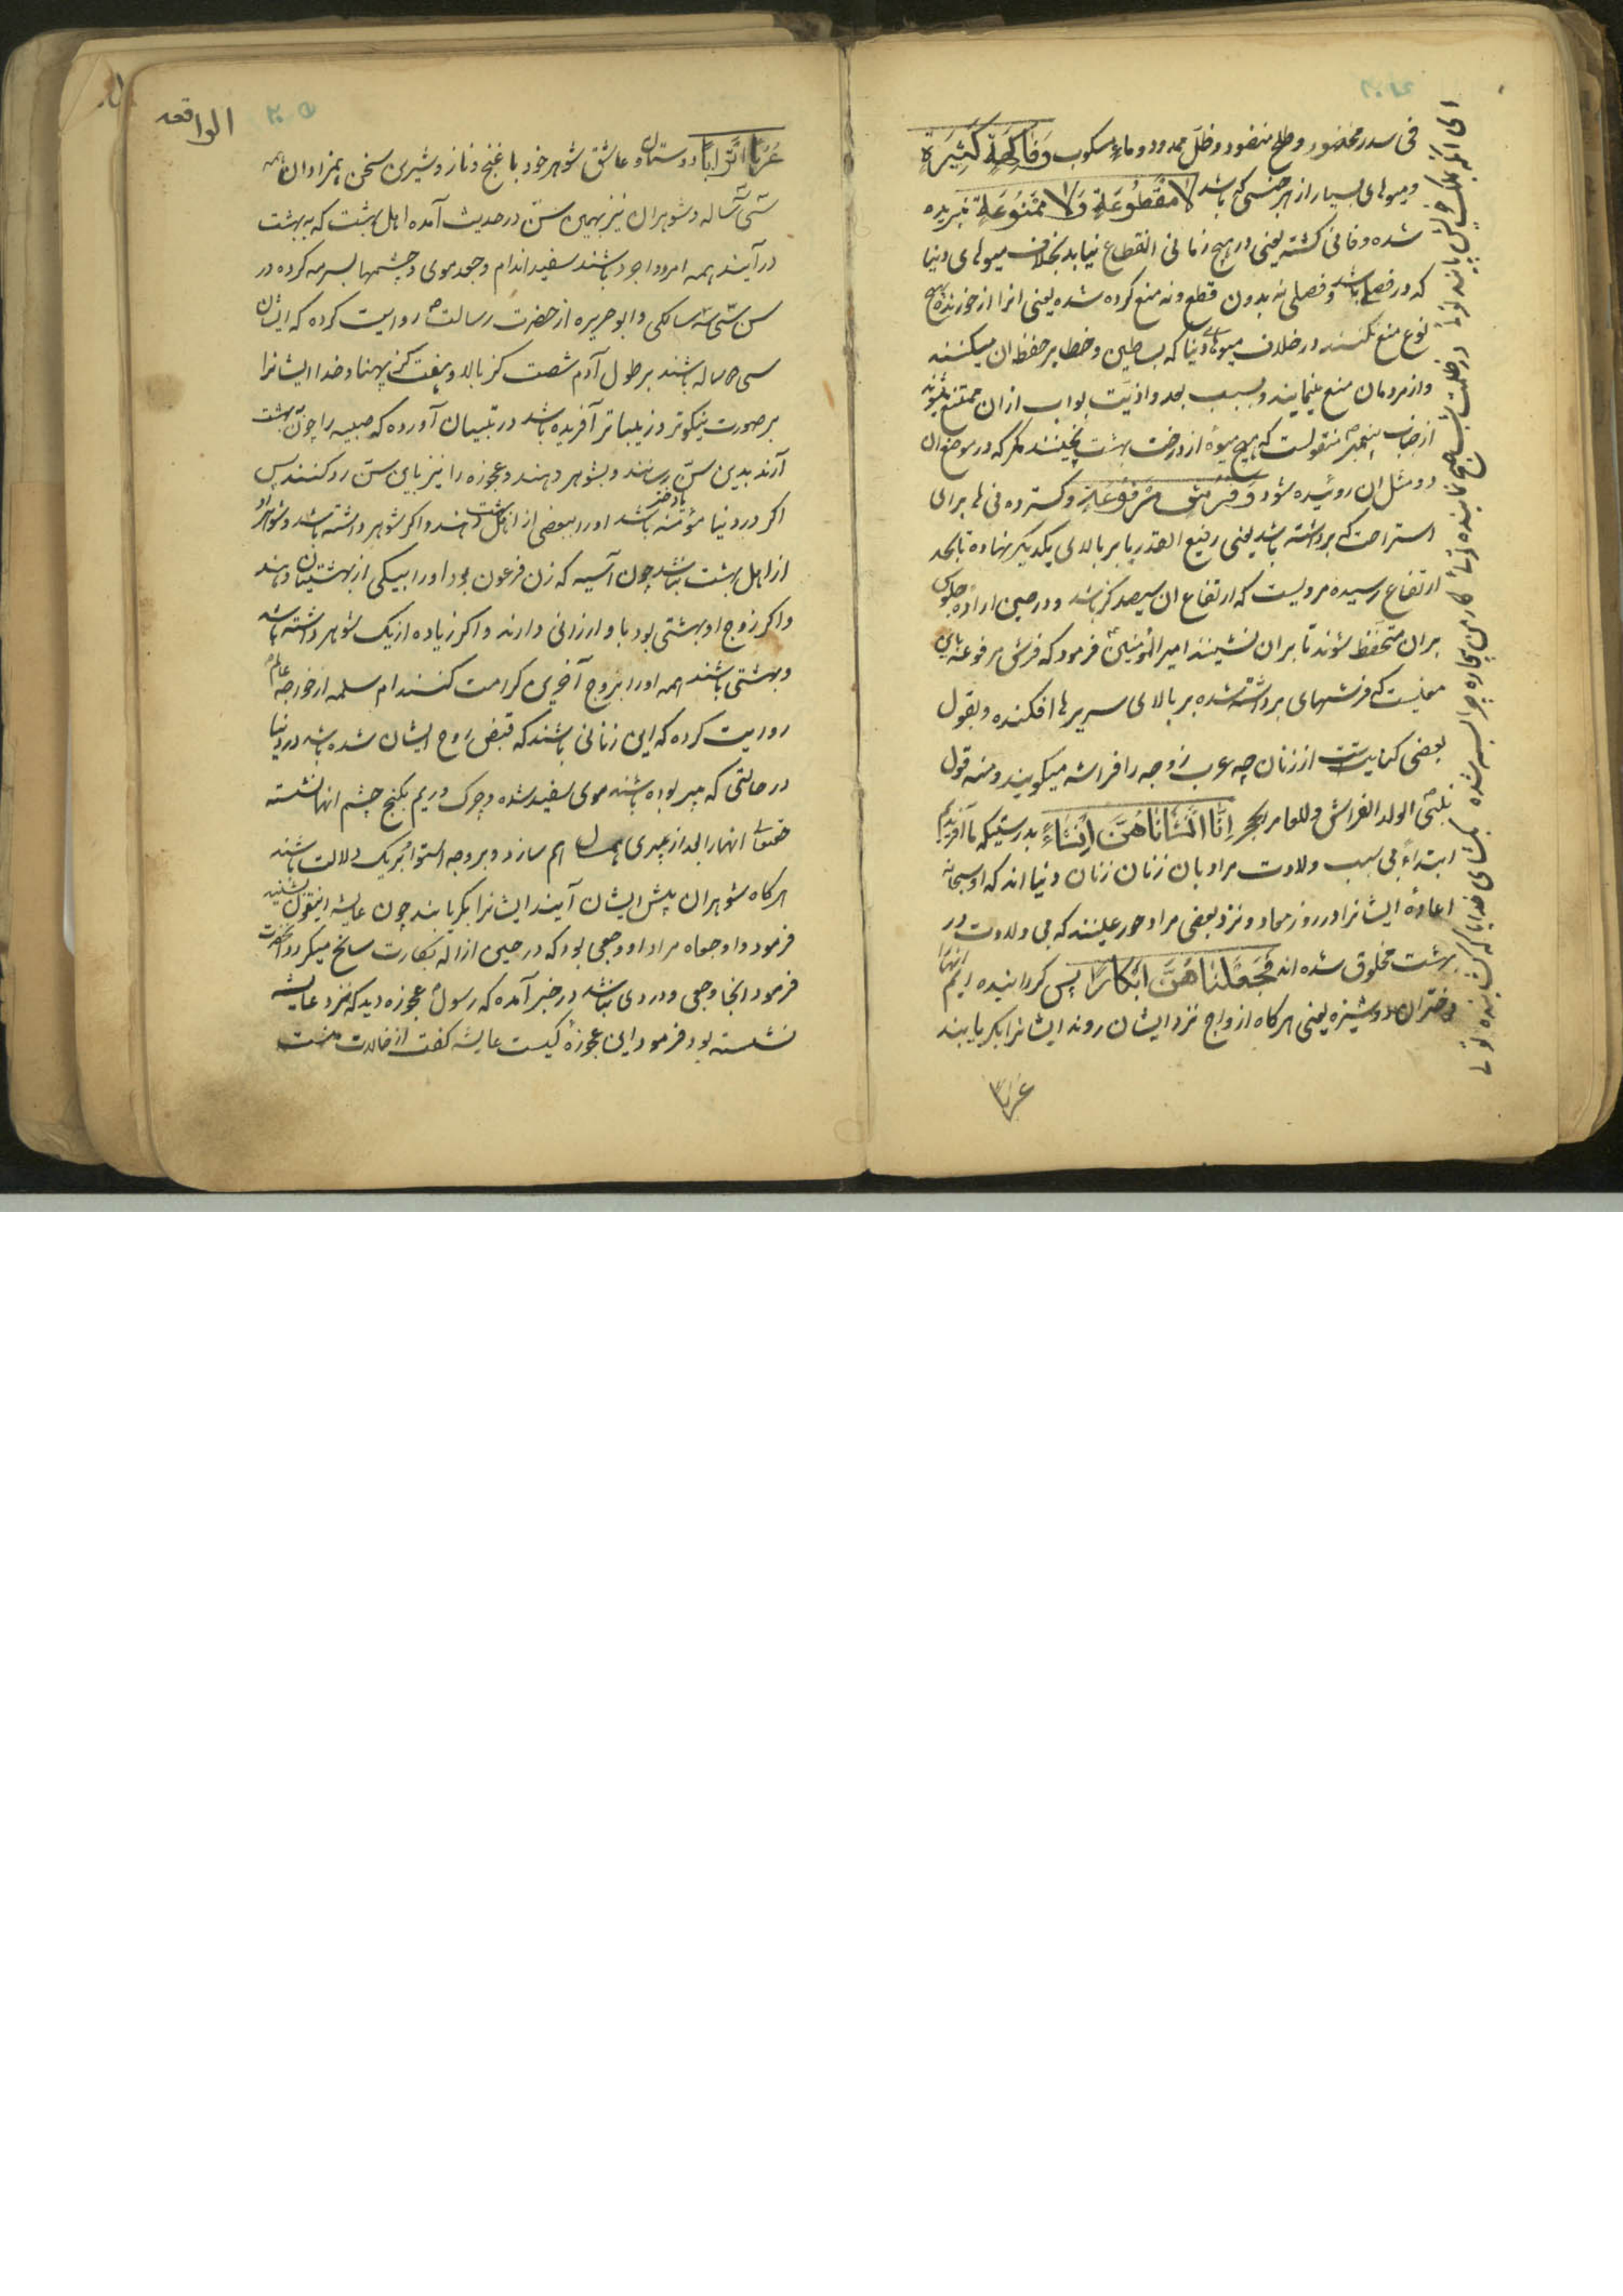 فی سدر مخضود و طلح منضود و ظل ممدود و ماء مسکوب وَفَاكِهَةٍ كَثِيرَةٍ
و میوهای بسیار از هر جنسی که باشد لا مَقْطُوعَةٍ وَلا مَمْنُوعَةٍ نبریده
شده و فانی کشته یعنی در هیچ زمانی انقطاع نیابد بخلاف میوهای دنیا
که در فصلی باشد و فصلی نه بدون قطع و نه منع کرده شده یعنی انرا از خورنده بهیچ
نوع منع نکنند در خلاف میوهای دنیا که بساطین و خطایر حفظ ان میکنند
و از مردمان منع مینمایند و بسبب بعد و اذیت بواب از ان ممتنع میشوند
از جناب پیغمبر منقولست که هیچ میوهٔ از درخت بهشت نچینند مکر که در موضع ان
دو مثل ان روئیده شود وَفُرُشٍ مَرْفُوعَةٍ و کسترده نی ها برای
استراحت که برداشته باشد یعنی رفیع القدر یا بر بالای یکدیکر نهاده تا بحد
ارتفاع رسیده مرویست که ارتفاع ان سیصد کز باشد و در حین ارادهٔ جلوس
بران منخفظ شوند تا بران نشینند امیر المؤمنین فرمود که فرش مرفوعه باین
معنیست که فرشهای برداشته شده بر بالای سریرها افکنده و بقول
بعضی کنایتست از زنان چه عرب زوجه را فراشه میکویند و منه قول
النبی الولد الفراش و للعاهر الحجر اِنَّا اَنْشَأْنَاهُنَّ اِنْشَاءً بدرستیکه ما آفریدیم
ابتداءً بی سبب ولادت مراد بان زنان زنان دنیا اند که او سبحانه
اعادهٔ ایشانرا در روز معاد و نزد بعضی مراد حور عینند که بی ولادت در
بهشت مخلوق شده اند فَجَعَلْنَاهُنَّ اَبْكَارًا پس کردانیده ایم انها را
دختران دوشیزه یعنی هرکاه ازواج نزد ایشان روند ایشانرا بکر یابند
عُرُبًا
الواقعه
۲۰۵
عُرُبًا اَتْرَابًا دوستان و عاشق شوهر خود با غنج و ناز و شیرین سخن همزادان همه
سی ساله و شوهران نیز بهمین سن در حدیث آمده اهل بهشت که به بهشت
درآیند همه امرد و اجرد باشند سفید اندام و جعد موی و چشمها بسرمه کرده در
سن سی سه سالکی و ابو حریره از حضرت رسالت روایت کرده که ایشان
سی ساله باشند بر طول آدم شصت کز بالا و هفت کز پهنا و خدا ایشانرا
بر صورت نیکوتر و زیباتر آفریده باشد در تبیان آورده که صبیه را چون به بهشت
آرند بدین سن رسانند و بشوهر دهند و عجوزه را نیز باین سن رد کنند پس
اکر در دنیا مؤمنه باشد او را ببعضی از اهل بهشت دهند و اکر شوهر داشته باشد و شوهر او
از اهل بهشت نباشد چون آسیه که زن فرعون بود او را بیکی از بهشتیان دهند
و اکر زوج او بهشتی بود باو ارزانی دارند و اکر زیاده از یک شوهر داشته باشد
و بهشتی باشند همه او را بزوج آخرین کرامت کنند ام سلمه از خواجه عالم
روریت کرده که این زنانی باشند که قبض روح ایشان شده باشد در دنیا
در حالتی که پیر بوده باشند موی سفید شده و چرک و ریم بکنج چشم انها نشسته
حقتعالی انهارا بعد از پیری همسال هم سازد و بر وجه استوا بریک دلالت باشند
هرکاه شوهران پیش ایشان آیند ایشانرا بکر یابند چون عایشه اینقول بشنید
فرمود وا وجعاه مراد او وجعی بود که در حین ازاله بکارت سانح میکردد انحضرت
فرمود انجا وجعی و دردی نباشد در خبر آمده که رسول عجوزه دید که نزد عایشه
نشسته بود فرمود این عجوزهٔ کیست عایشه کفت از خالات منست